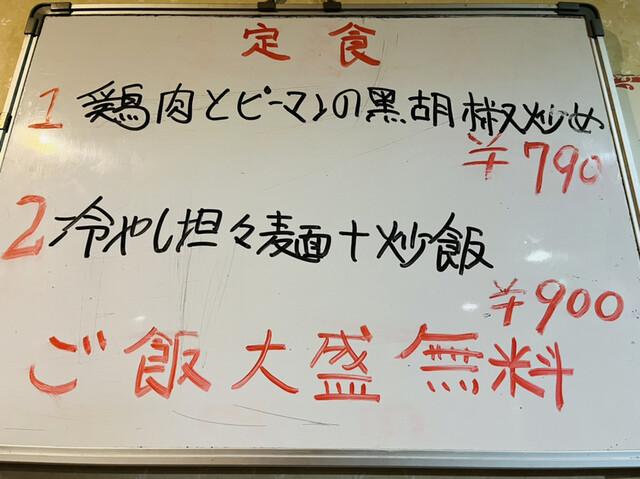 定食
1 鶏肉とピーマンの黒胡椒炒め
¥790
2 冷やし担々麺+炒飯
¥900
ご飯大盛無料